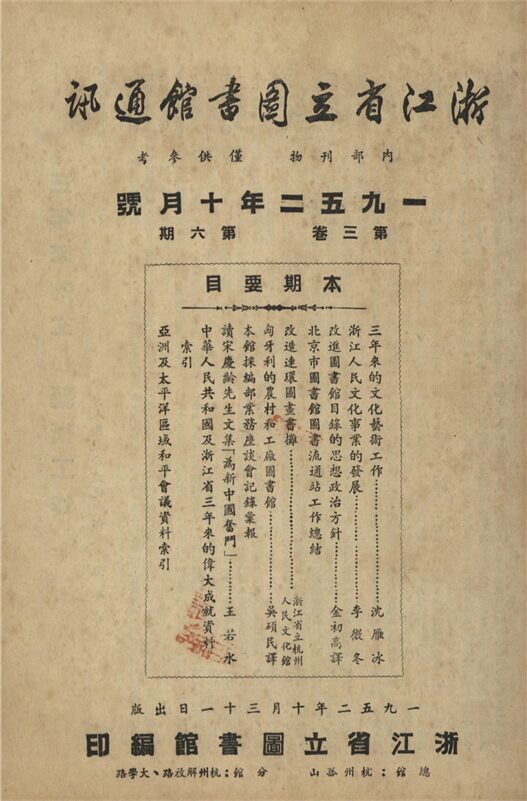 浙江省立圖書館通訊
内部刊物 僅供參考
一九五二年十月號
第三卷 第六期
本期要目
三年來的文化藝術工作……沈雁冰
浙江人民文化事業的發展……李微冬
改進圖書館目錄的思想政治方針……金初高譯
北京市圖書館圖書流通站工作總結
改造連環圖畫書攤……浙江省立杭州人民文化館
匈牙利的農村和工廠圖書館……吳碩民譯
本館採編部業務座談會記錄彙報
讀宋慶齡先生文集「為新中國奮鬥」……王若水
中華人民共和國及浙江省三年來的偉大成就資料
索引
亞洲及太平洋區域和平會議資料索引
一九五二年十月三十一日出版
浙江省立圖書館編印
總館:杭州孤山 分館:杭州解放路、大學路